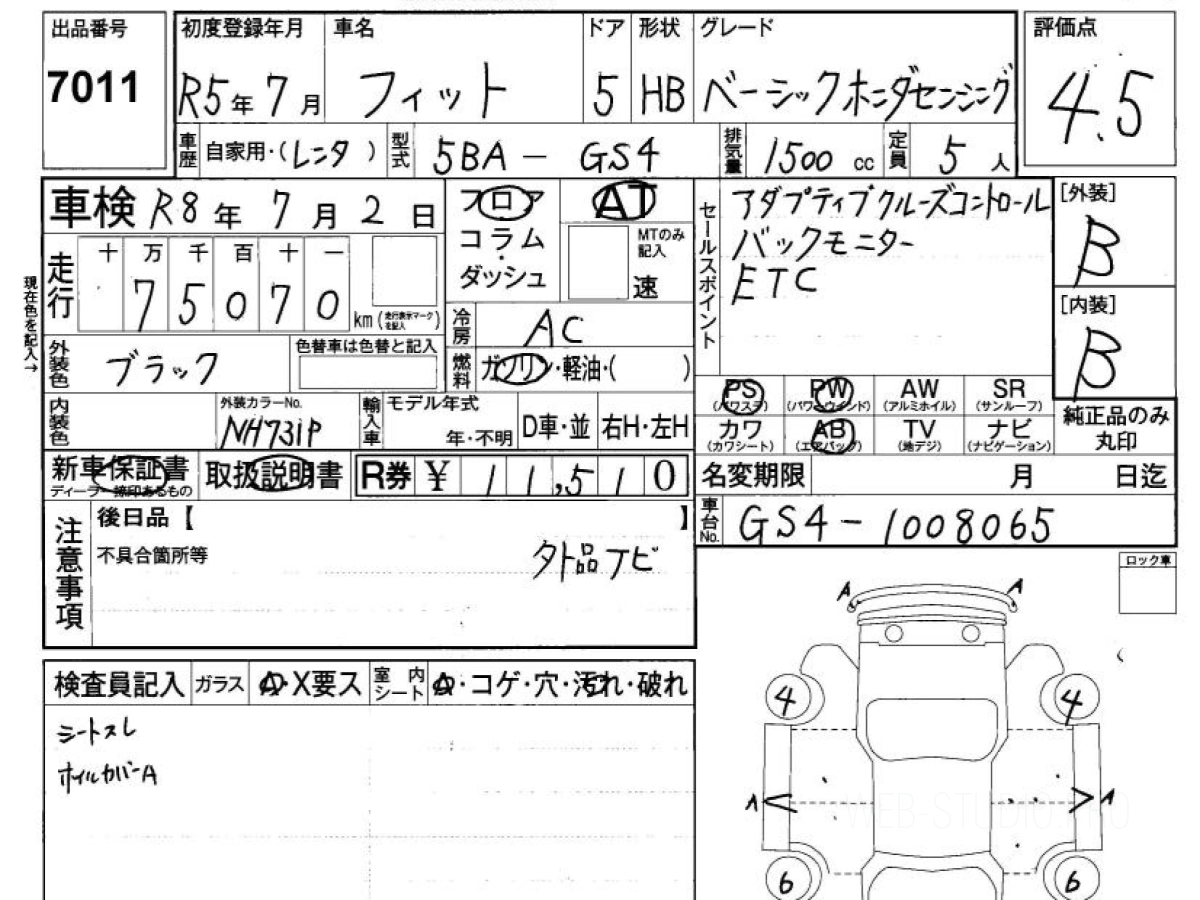 出品番号
7011
初度登録年月
R5年7月
車名
フィット
ドア
5
形状
HB
グレード
ベーシックホンダセンシング
評価点
4.5
車歴
自家用・(レンタ)
型式
5BA - GS4
排気量
1500 cc
定員
5人
車検 R8年7月2日
走行
十 万 千 百 十 一
7 5 0 7 0
km(走行表示マークを記入)
現在色を記入→
外装色
ブラック
色替車は色替と記入
内装色
外装カラーNo.
NH731P
フロア
コラム
・
ダッシュ
AT
MTのみ記入
速
冷房
AC
燃料
ガソリン・軽油・( )
輸入車
モデル年式
年・不明
D車・並
右H・左H
セールスポイント
アダプティブクルーズコントロール
バックモニター
ETC
[外装]
B
[内装]
B
PS
(パワステ)
PW
(パワーウインド)
AW
(アルミホイル)
SR
(サンルーフ)
カワ
(カワシート)
AB
(エアバッグ)
TV
(地デジ)
ナビ
(ナビゲーション)
純正品のみ
丸印
新車保証書
ディーラー捺印あるもの
取扱説明書
R券 ¥ 11,510
名変期限 月 日迄
車台No.
GS4-1008065
注意事項
後日品【 】
不具合箇所等
外品ナビ
ロック車
検査員記入
ガラス
A・X要ス
室内シート
A・コゲ・穴・汚れ・破れ
シートスレ
ホイルカバーA
A A
4 4
A A
6 6
WEB-STUDIO.PRO